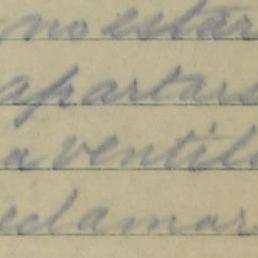 no estar
apartars
a ventila
clamar